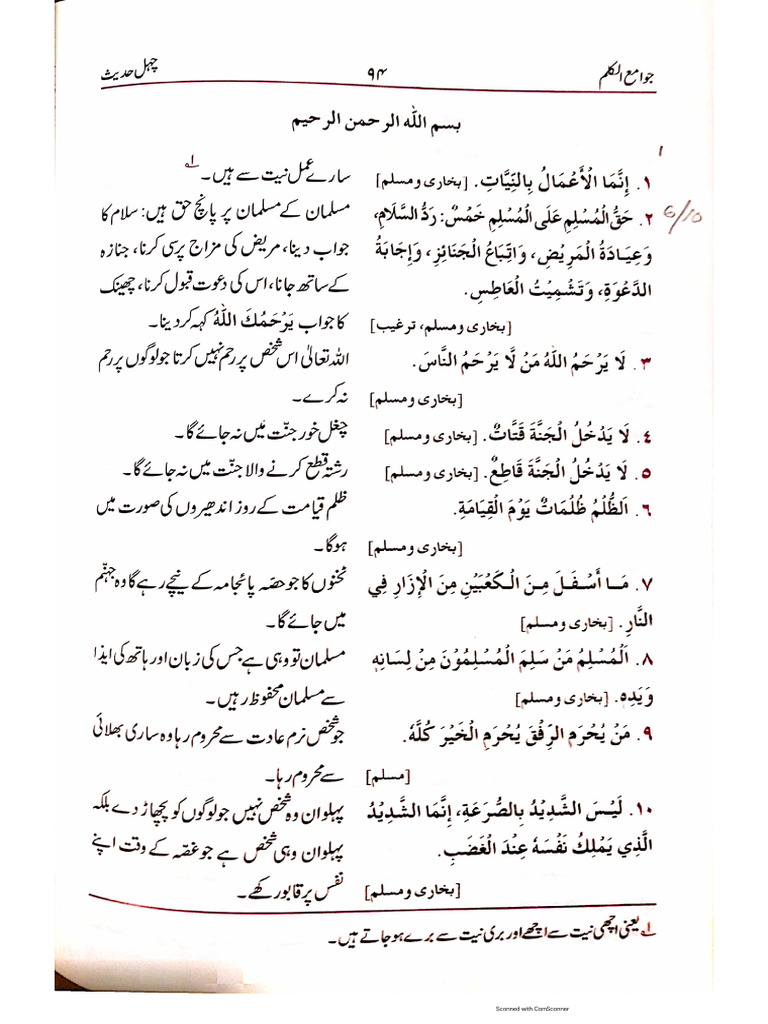 جوامع الکلم ۹۴ چہل حدیث
بسم اللہ الرحمن الرحیم
۱. إِنَّمَا الْأَعْمَالُ بِالنِّيَّاتِ. [بخاری ومسلم] سارے عمل نیت سے ہیں۔ لے
۲. حَقُّ الْمُسْلِمِ عَلَى الْمُسْلِمِ خَمْسٌ: رَدُّ السَّلَامِ، مسلمان کے مسلمان پر پانچ حق ہیں: سلام کا
6/10
وَعِيَادَةُ الْمَرِيْضِ، وَاتِّبَاعُ الْجَنَائِزِ، وَإِجَابَةُ جواب دینا، مریض کی مزاج پرسی کرنا، جنازہ
الدَّعْوَةِ، وَتَشْمِيْتُ الْعَاطِسِ. کے ساتھ جانا، اس کی دعوت قبول کرنا، چھینک
[بخاری ومسلم، ترغیب] کا جواب یَرْحَمُكَ اللّٰهُ کہہ کر دینا۔
۳. لَا يَرْحَمُ اللّٰهُ مَنْ لَّا يَرْحَمُ النَّاسَ. اللہ تعالیٰ اس شخص پر رحم نہیں کرتا جو لوگوں پر رحم
[بخاری ومسلم] نہ کرے۔
٤. لَا يَدْخُلُ الْجَنَّةَ قَتَّاتٌ. [بخاری ومسلم] چغل خور جنّت میں نہ جائے گا۔
٥. لَا يَدْخُلُ الْجَنَّةَ قَاطِعٌ. [بخاری ومسلم] رشتہ قطع کرنے والا جنّت میں نہ جائے گا۔
٦. اَلظُّلْمُ ظُلُمَاتٌ يَوْمَ الْقِيَامَةِ. ظلم قیامت کے روز اندھیروں کی صورت میں
[بخاری ومسلم] ہوگا۔
۷. مَا أَسْفَلَ مِنَ الْكَعْبَيْنِ مِنَ الْإِزَارِ فِي ٹخنوں کا جو حصّہ پائجامہ کے نیچے رہے گا وہ جہنّم
النَّارِ. [بخاری ومسلم] میں جائے گا۔
۸. اَلْمُسْلِمُ مَنْ سَلِمَ الْمُسْلِمُوْنَ مِنْ لِسَانِهٖ مسلمان تو وہی ہے جس کی زبان اور ہاتھ کی ایذا
وَيَدِهٖ. [بخاری ومسلم] سے مسلمان محفوظ رہیں۔
۹. مَنْ يُحْرَمِ الرِّفْقَ يُحْرَمِ الْخَيْرَ كُلَّهٗ. جو شخص نرم عادت سے محروم رہا وہ ساری بھلائی
[مسلم] سے محروم رہا۔
۱۰. لَيْسَ الشَّدِيْدُ بِالصُّرَعَةِ، إِنَّمَا الشَّدِيْدُ پہلوان وہ شخص نہیں جو لوگوں کو پچھاڑ دے بلکہ
الَّذِي يَمْلِكُ نَفْسَهٗ عِنْدَ الْغَضَبِ. پہلوان وہی شخص ہے جو غصّہ کے وقت اپنے
[بخاری ومسلم] نفس پر قابو رکھے۔
لے یعنی اچھی نیت سے اچھے اور بری نیت سے برے ہو جاتے ہیں۔
Scanned with CamScanner